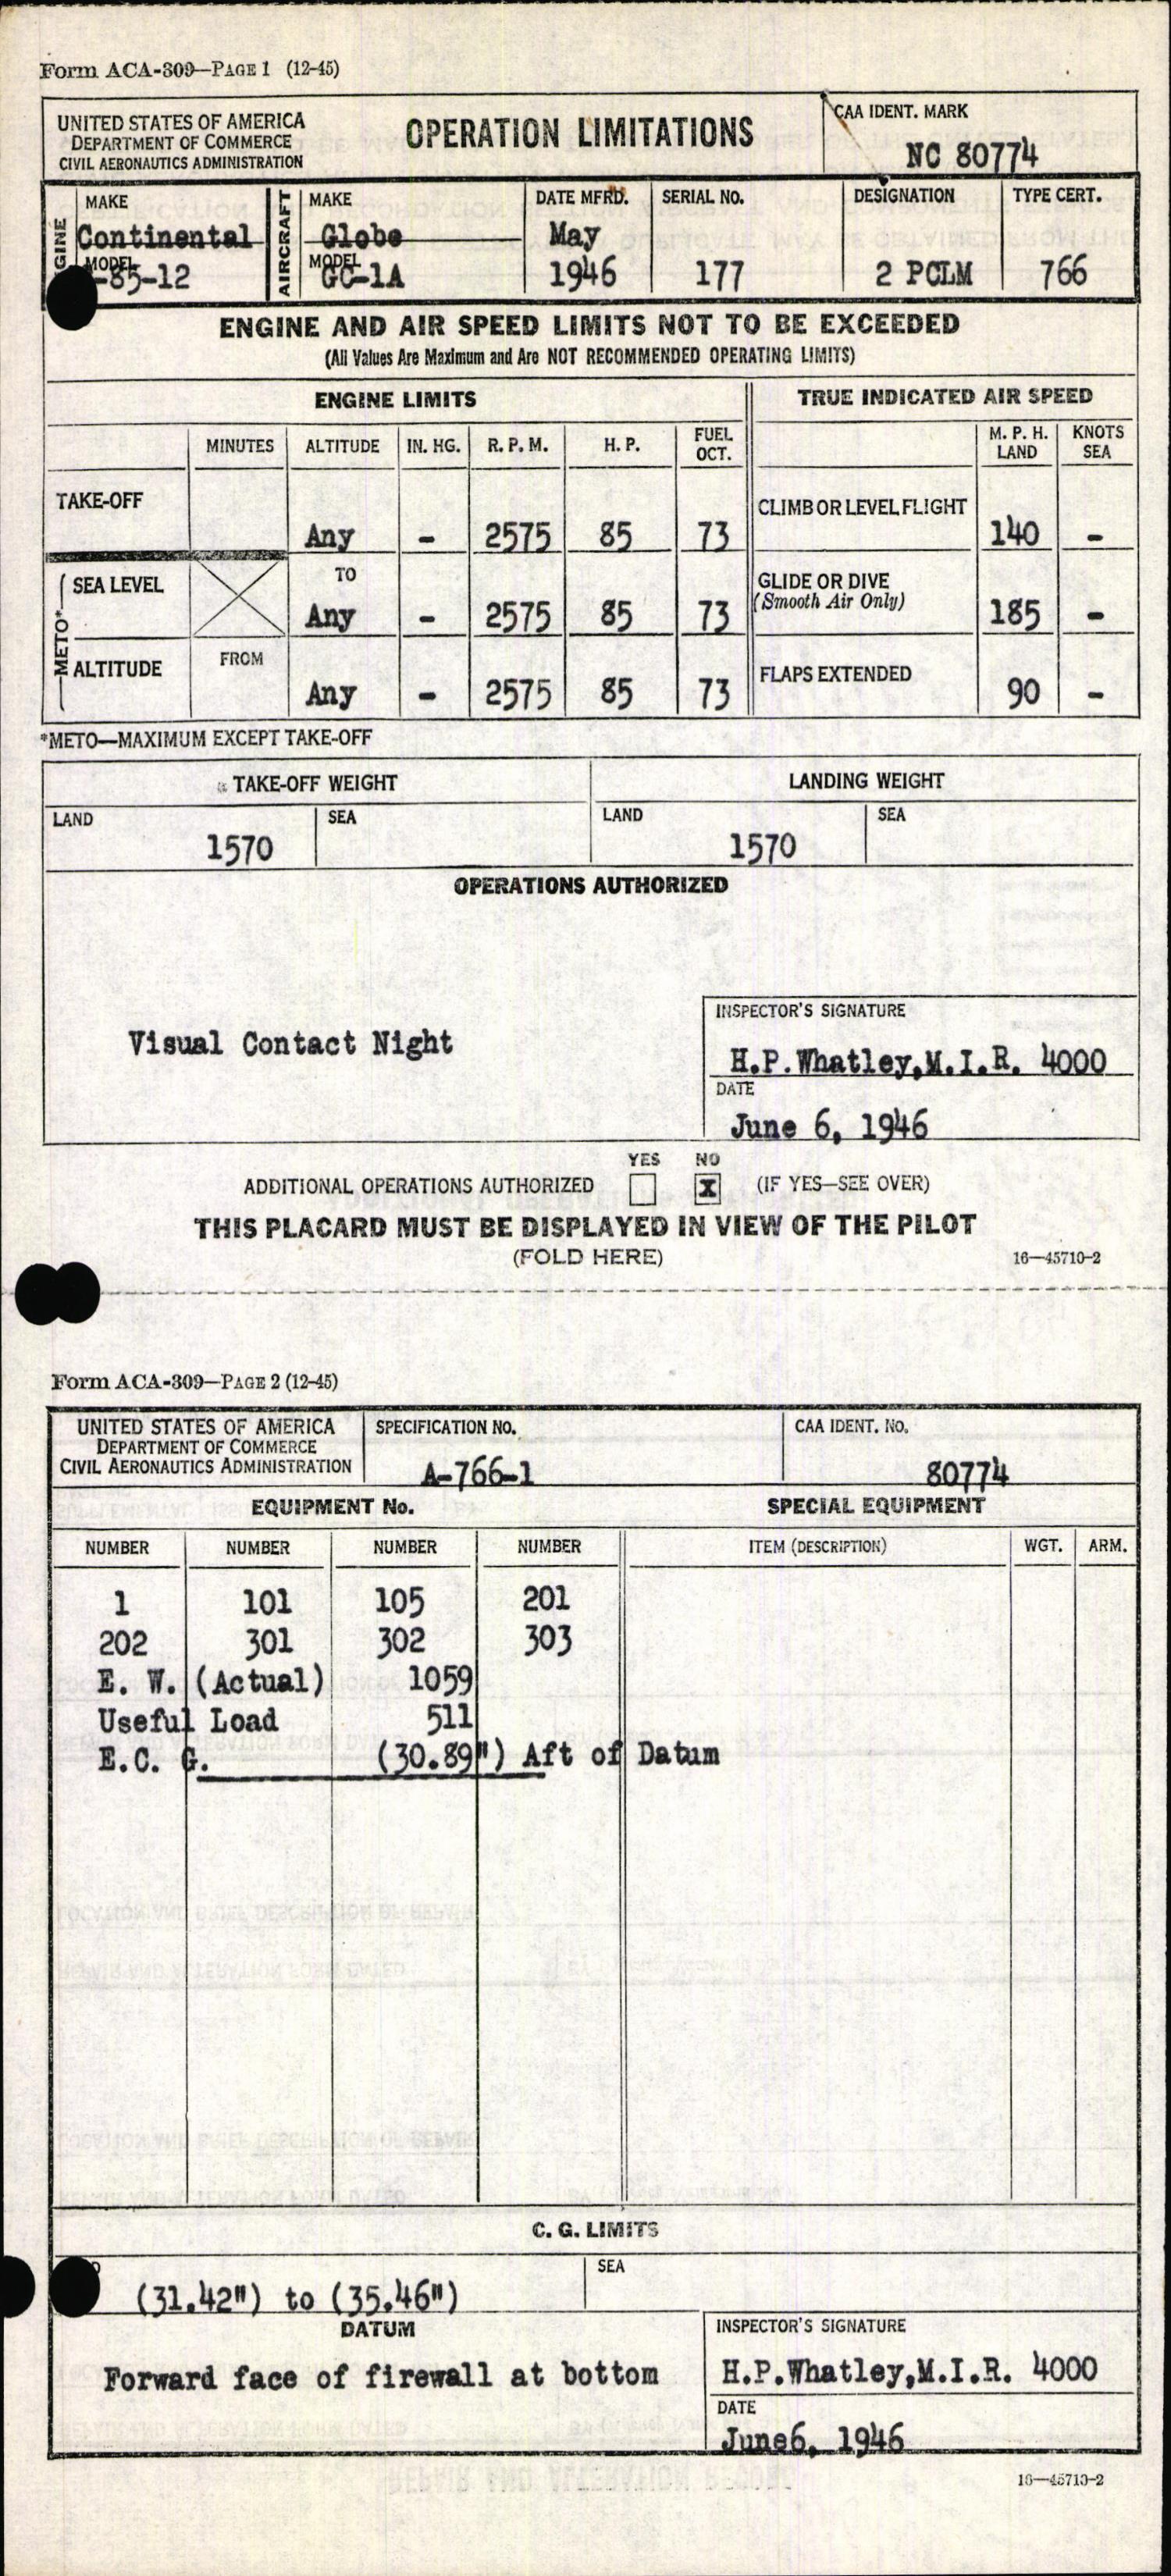 Form ACA-309—PAGE 1 (12-45)
UNITED STATES OF AMERICA
DEPARTMENT OF COMMERCE
CIVIL AERONAUTICS ADMINISTRATION
OPERATION LIMITATIONS
CAA IDENT. MARK
NC 80774
MAKE
Continental
MODEL
-85-12
AIRCRAFT
MAKE
Globe
MODEL
GC-1A
DATE MFRD.
May
1946
SERIAL NO.
177
DESIGNATION
2 PCLM
TYPE CERT.
766
ENGINE AND AIR SPEED LIMITS NOT TO BE EXCEEDED
(All Values Are Maximum and Are NOT RECOMMENDED OPERATING LIMITS)
ENGINE LIMITS
TRUE INDICATED AIR SPEED
MINUTES ALTITUDE IN. HG. R. P. M. H. P. FUEL OCT. M. P. H. LAND KNOTS SEA
TAKE-OFF Any - 2575 85 73
CLIMB OR LEVEL FLIGHT 140 -
METO*
SEA LEVEL TO Any - 2575 85 73
GLIDE OR DIVE (Smooth Air Only) 185 -
ALTITUDE FROM Any - 2575 85 73
FLAPS EXTENDED 90 -
*METO—MAXIMUM EXCEPT TAKE-OFF
TAKE-OFF WEIGHT LANDING WEIGHT
LAND SEA LAND SEA
1570 1570
OPERATIONS AUTHORIZED
Visual Contact Night
INSPECTOR'S SIGNATURE
H.P.Whatley,M.I.R. 4000
DATE
June 6, 1946
YES NO
ADDITIONAL OPERATIONS AUTHORIZED X (IF YES—SEE OVER)
THIS PLACARD MUST BE DISPLAYED IN VIEW OF THE PILOT
(FOLD HERE) 16—45710-2
Form ACA-309—PAGE 2 (12-45)
UNITED STATES OF AMERICA
DEPARTMENT OF COMMERCE
CIVIL AERONAUTICS ADMINISTRATION
SPECIFICATION NO.
A-766-1
CAA IDENT. NO.
80774
EQUIPMENT No. SPECIAL EQUIPMENT
NUMBER NUMBER NUMBER NUMBER ITEM (DESCRIPTION) WGT. ARM.
1 101 105 201
202 301 302 303
E. W. (Actual) 1059
Useful Load 511
E.C. G. (30.89") Aft of Datum
C. G. LIMITS
SEA
(31.42") to (35.46")
DATUM
Forward face of firewall at bottom
INSPECTOR'S SIGNATURE
H.P.Whatley,M.I.R. 4000
DATE
June6, 1946
16—45710-2